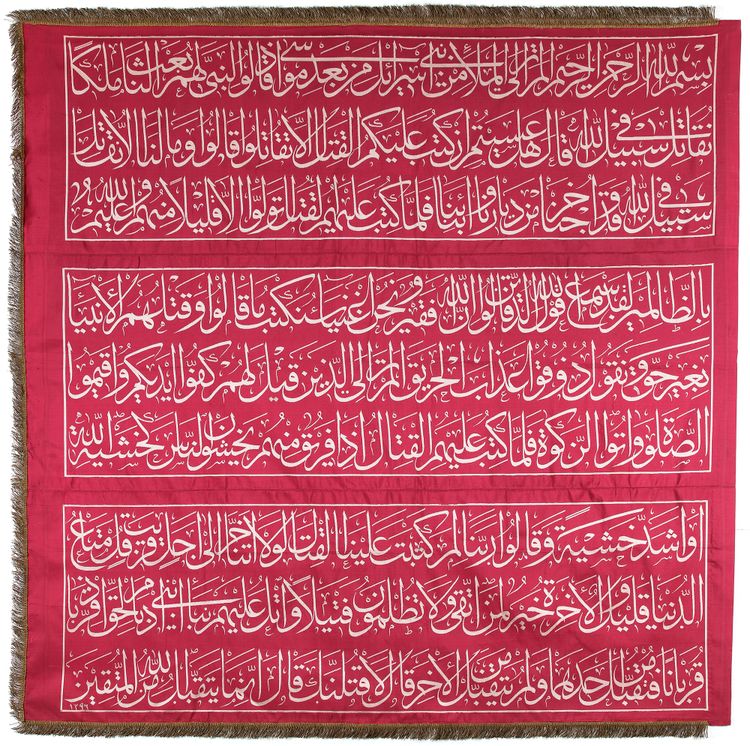 بسم الله الرحمن الرحيم الم تر الى الملا من بني اسرائل من بعد موسى اذ قالوا لنبي لهم ابعث لنا ملكا
نقاتل في سبيل الله قال هل عسيتم ان كتب عليكم القتال الا تقاتلوا قالوا وما لنا الا نقاتل
في سبيل الله وقد اخرجنا من ديارنا وابنائنا فلما كتب عليهم القتال تولوا الا قليلا منهم والله عليم
بالظالمين لقد سمع الله قول الذين قالوا ان الله فقير ونحن اغنياء سنكتب ما قالوا وقتلهم الانبياء
بغير حق ونقول ذوقوا عذاب الحريق الم تر الى الذين قيل لهم كفوا ايديكم واقيموا
الصلوة واتوا الزكوة فلما كتب عليهم القتال اذا فريق منهم يخشون الناس كخشية الله
او اشد خشية وقالوا ربنا لم كتبت علينا القتال لولا اخرتنا الى اجل قريب قل متاع
الدنيا قليل والاخرة خير لمن اتقى ولا تظلمون فتيلا واتل عليهم نبا ابني ادم بالحق اذ قربا
قربانا فتقبل من احدهما ولم يتقبل من الاخر قال لاقتلنك قال انما يتقبل الله من المتقين